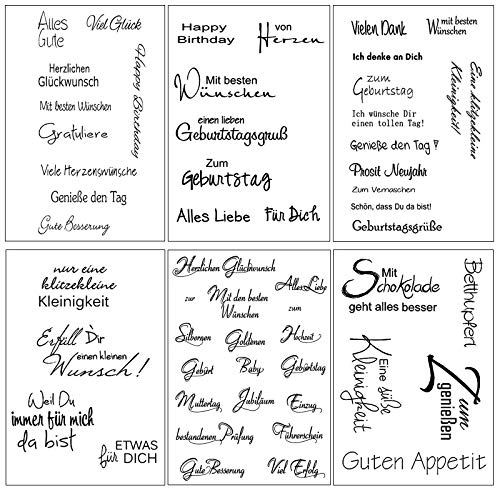 Alles
Gute
Viel Glück
Happy Birthday
Herzlichen
Glückwunsch
Mit besten Wünschen
Gratuliere
Viele Herzenswünsche
Genieße den Tag
Gute Besserung
Happy
Birthday
von
Herzen
Mit besten
Wünschen
einen lieben
Geburtstagsgruß
Zum
Geburtstag
Alles Liebe
Für Dich
Vielen Dank
mit besten
Wünschen
Eine klitzekleine
Kleinigkeit!
Ich denke an Dich
zum
Geburtstag
Ich wünsche Dir
einen tollen Tag!
Genieße den Tag!
Prosit Neujahr
Zum Vernaschen
Schön, dass Du da bist!
Geburtstagsgrüße
nur eine
klitzekleine
Kleinigkeit
Erfüll Dir
einen kleinen
Wunsch!
Weil Du
immer für mich
da bist
ETWAS
für DICH
Herzlichen Glückwunsch
Alles Liebe
zur
Mit den besten
Wünschen
zum
Silbernen
Goldenen
Hochzeit
Geburt
Baby
Geburtstag
Muttertag
Jubiläum
Einzug
bestandenen Prüfung
Führerschein
Gute Besserung
Viel Erfolg
Mit
Schokolade
geht alles besser
Betthupferl
Eine süße
Kleinigkeit
Zum
genießen
Guten Appetit